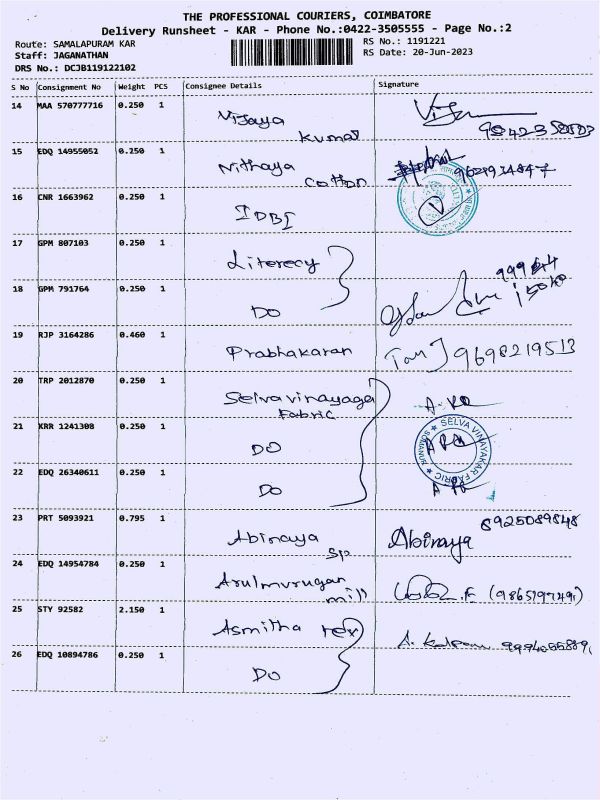 THE PROFESSIONAL COURIERS, COIMBATORE
Delivery Runsheet - KAR - Phone No.:0422-3505555 - Page No.:2
Route: SAMALAPURAM KAR RS No.: 1191221
Staff: JAGANATHAN RS Date: 20-Jun-2023
DRS No.: DCJB119122102
S No Consignment No Weight PCS Consignee Details Signature
14 MAA 570777716 0.250 1 Vijaya
Kumar
15 EDQ 14955052 0.250 1 Nithaya
Cotton
16 CNR 1663962 0.250 1 IDBI
17 GPM 807103 0.250 1 Literecy
18 GPM 791764 0.250 1 DO
19 RJP 3164286 0.460 1 Prabhakaran 9698219513
20 TRP 2012870 0.250 1 Selva vinayaga
Fabric
21 KRR 1241308 0.250 1 DO
SELVA VINAYAKAR FABRIC
22 EDQ 26340611 0.250 1 DO
23 PRT 5093921 0.795 1 Abinaya
Sp
Abinaya 8925089848
24 EDQ 14954784 0.250 1 Arulmurugan
mill
25 STY 92582 2.150 1 Asmitha tex
26 EDQ 10894786 0.250 1 DO